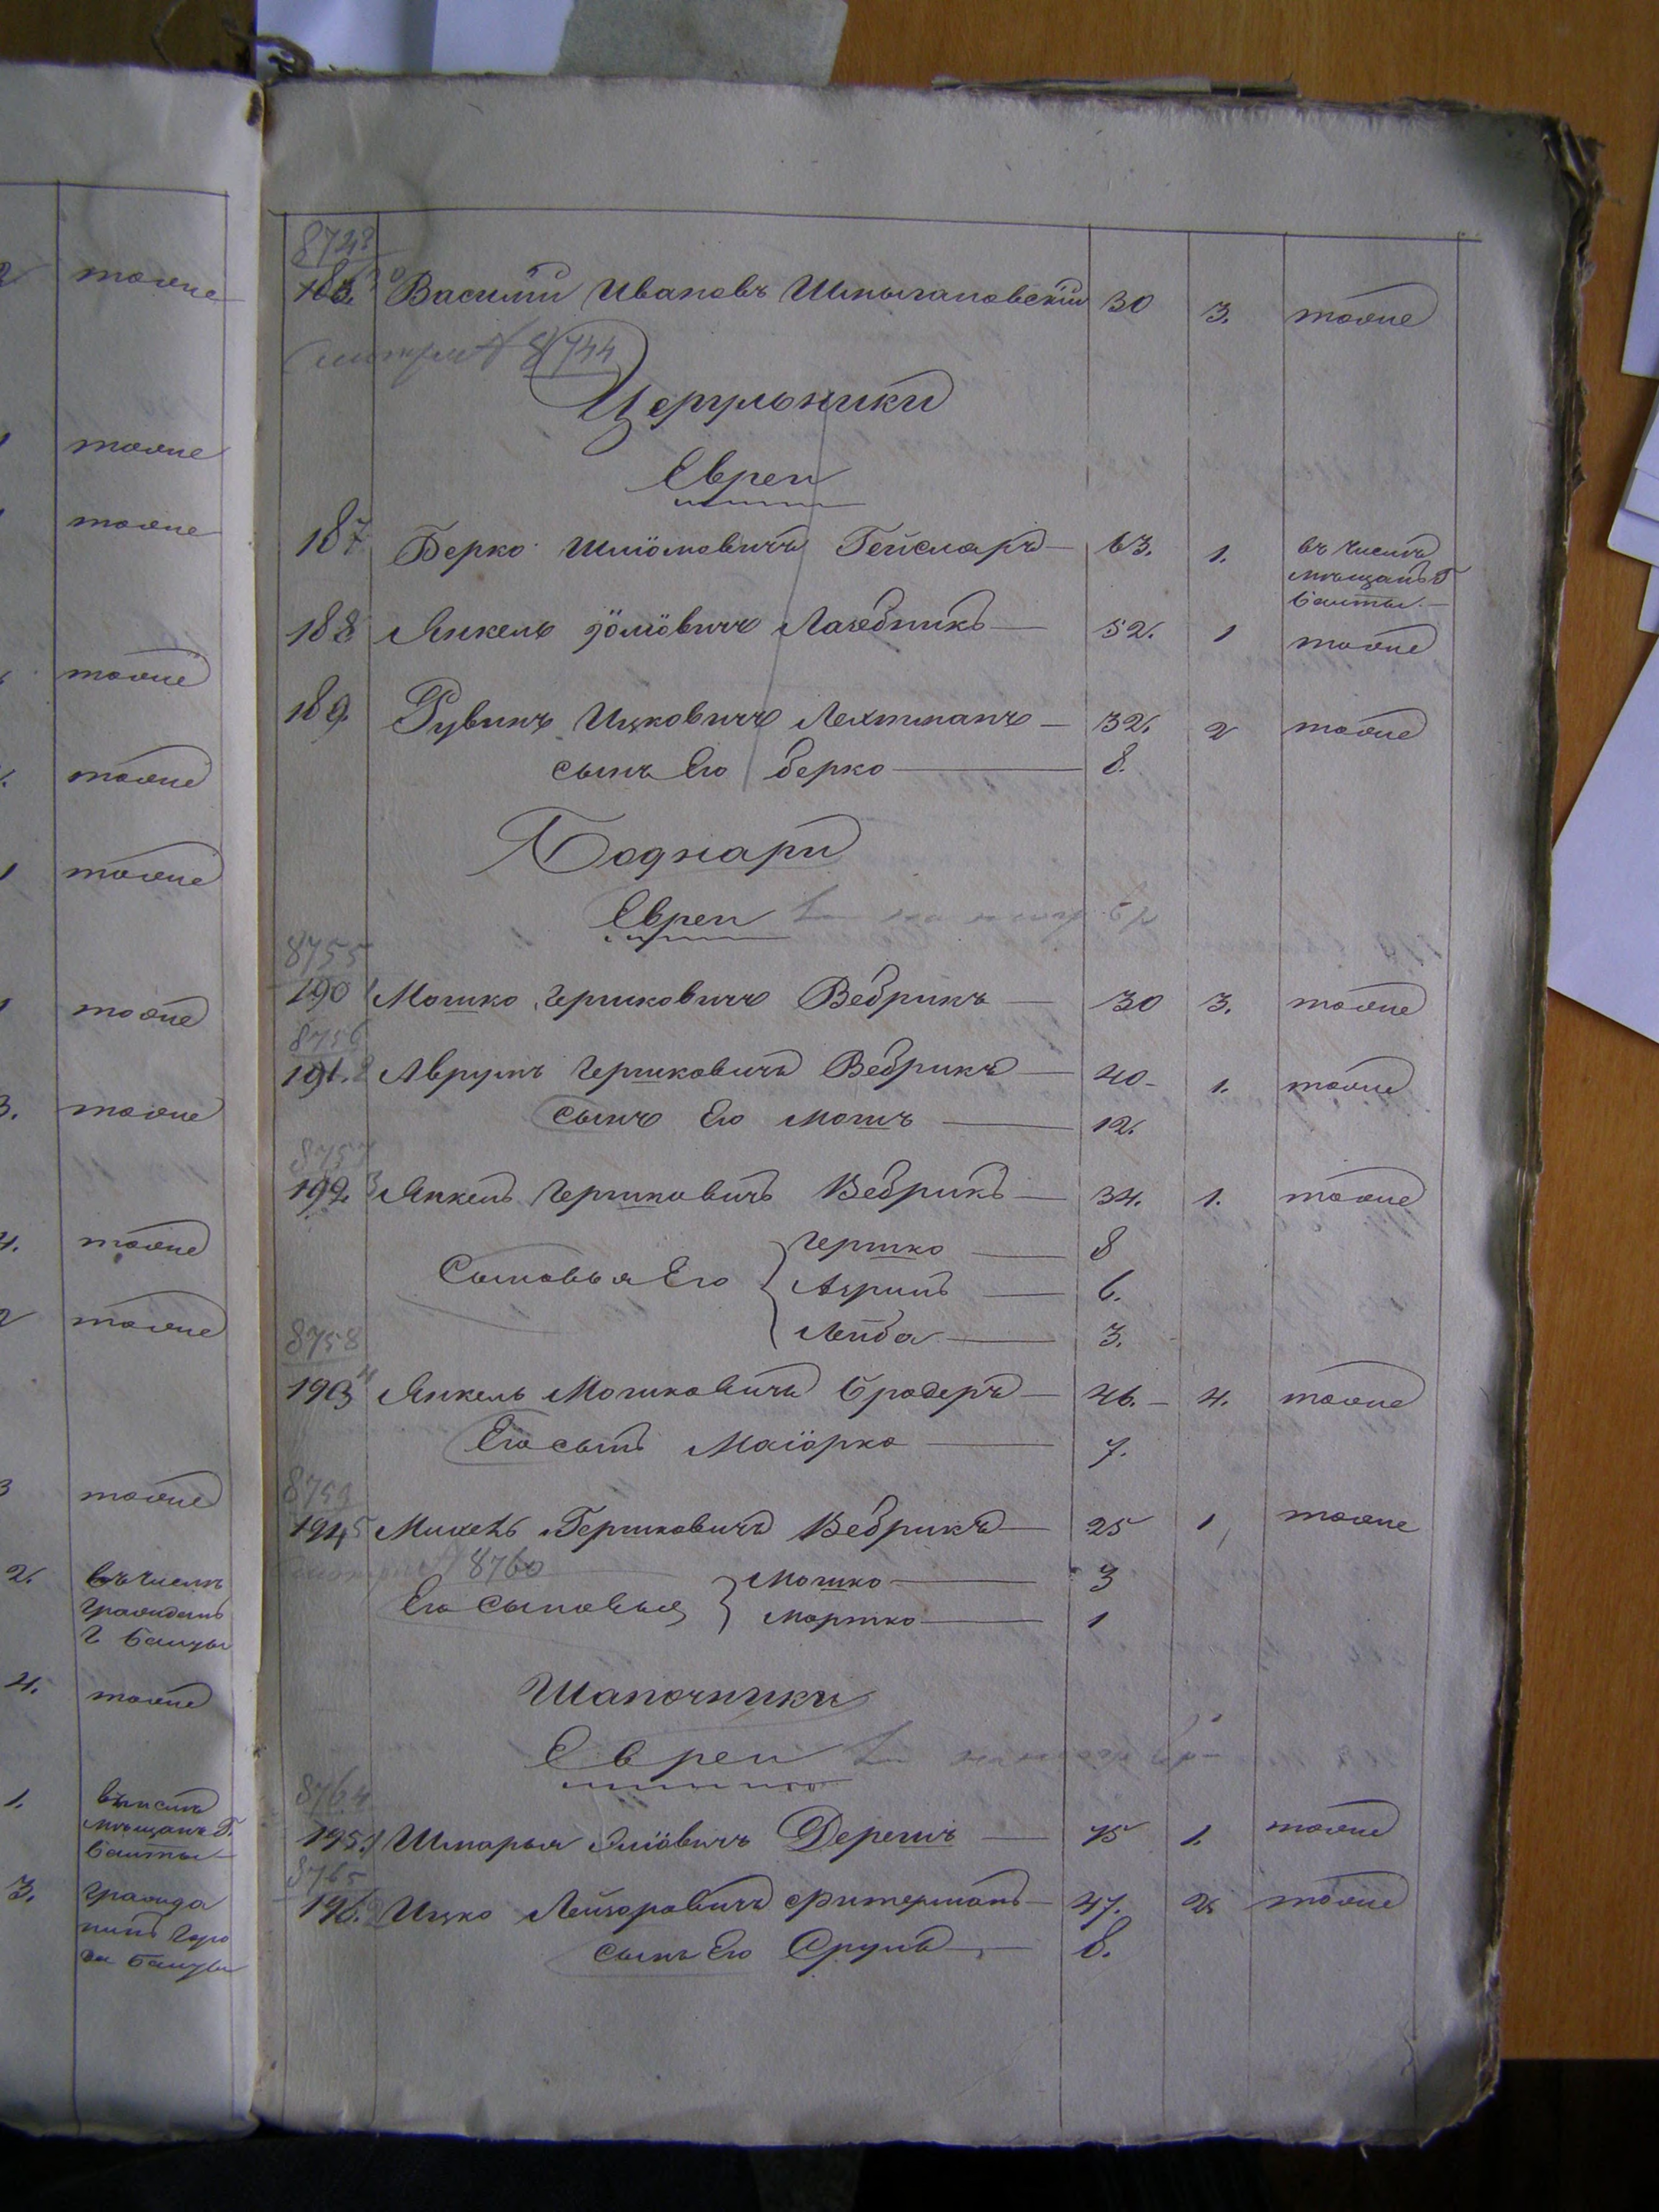 тоже
тоже
тоже
тоже
тоже
тоже
тоже
3. тоже
4. тоже
2 тоже
3 тоже
2. въ числѣ
гражданъ
г Балты
4. тоже
1. въ числѣ
мѣщанъ г.
Балты
3. гражда
нинъ горо
да Балты
8743
186. Василій Ивановъ 30 3. тоже
8744
Церульники
Евреи
187 Берко Шліомовичъ Гейсларъ 63. 1. въ числѣ
мѣщанъ г
Балты.
188 Янкель Іоліовичъ Лазебникъ 52. 1 тоже
189 Рувинъ Ицковичъ Лехтманъ 32. 2 тоже
сынъ Его Берко 8.
Боднари
Евреи
8755
190 Мошко Гершковичъ Вебрикъ 30 3. тоже
8756
191. 2 Аврумъ Гершковичъ Вебрикъ 40 1. тоже
сынъ Его Мошъ 12.
8757
192. 3 Янкель Гершковичъ Вебрикъ 34. 1. тоже
Гершко 8
Сыновья Его 6.
Лейба 3.
8758
193 4 Янкель Мошковичъ Бродеръ 46. 4. тоже
Его сынъ Маіорко 7.
8759
194 5 Михель Гершковичъ Вебрикъ 25 1 тоже
8760
Мошко 3
Его Сыновья Моршко 1
Шапочники
Евреи
8764
195. 1 Шмарья Эліовичъ Дерешъ 75 1. тоже
8765
196. 2 Ицко Лейзоровичъ Фитерманъ 47. 2. тоже
сынъ Его Срулъ 8.